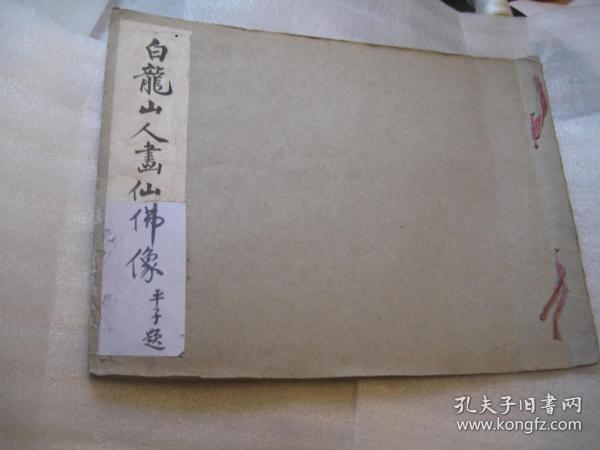 白龍山人畫仙佛像
平子题
孔夫子旧書网
www.kongfz.com